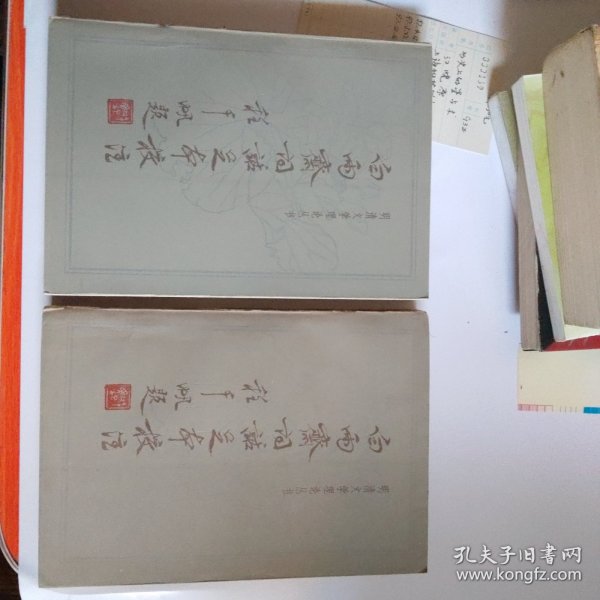 明清文學理論丛书
白雨齋詞話足本校注
程千帆題
明清文學理論丛书
白雨齋詞話足本校注
程千帆題
孔夫子旧书网
www.kongfz.com